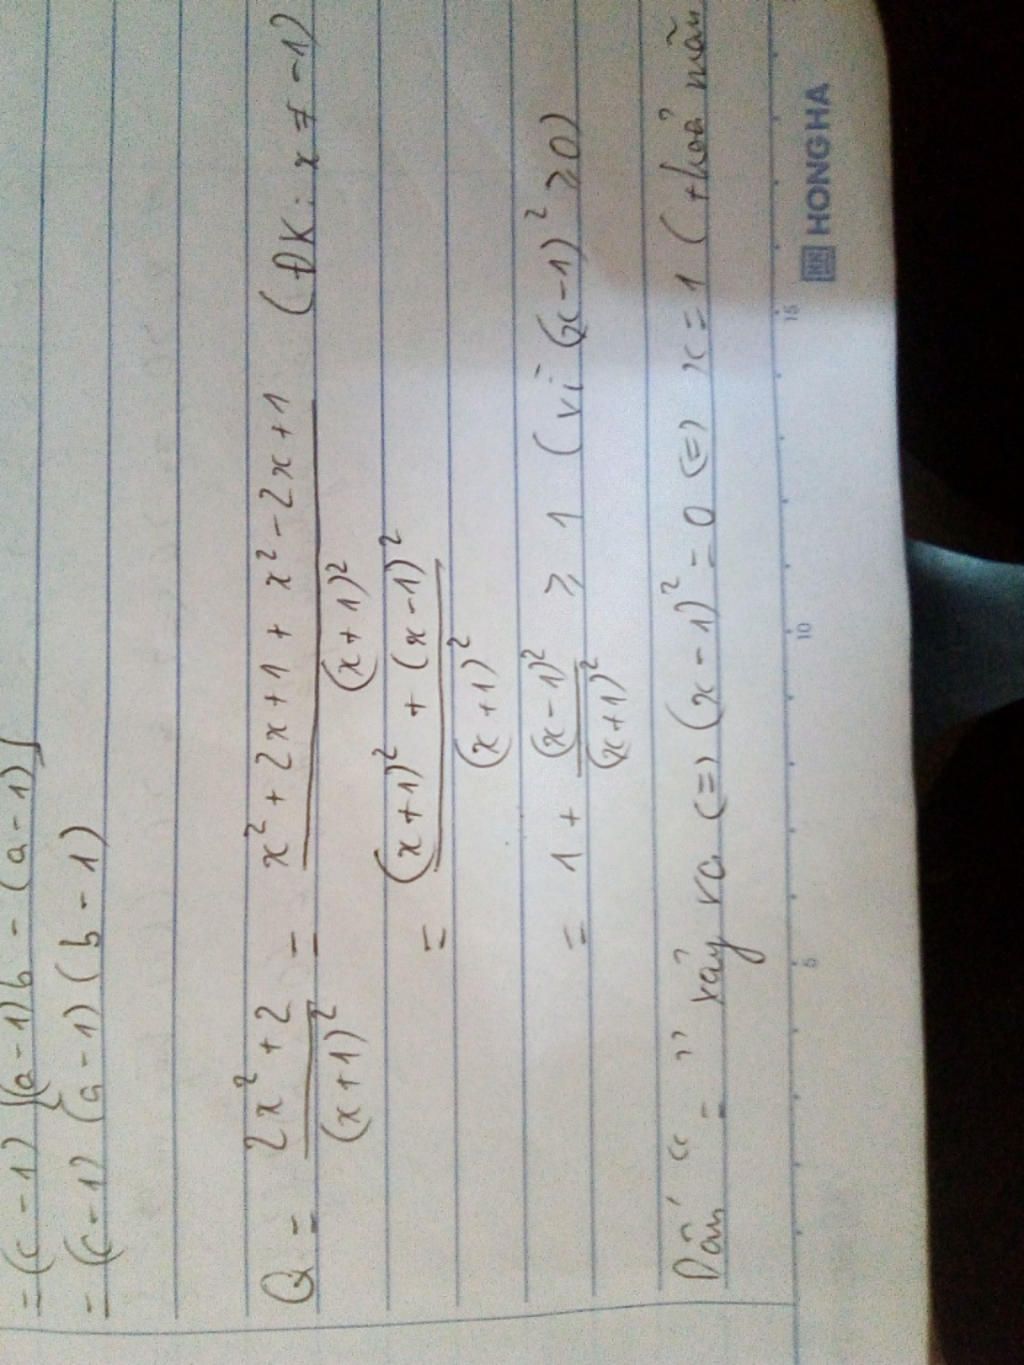 = (c - 1) [(a - 1)b - (a - 1)]
= (c - 1) (a - 1) (b - 1)
Q = \frac{2x² + 2}{(x + 1)²} = \frac{x² + 2x + 1 + x² - 2x + 1}{(x + 1)²} (ĐK: x ≠ -1)
= \frac{(x + 1)² + (x - 1)²}{(x + 1)²}
= 1 + \frac{(x - 1)²}{(x + 1)²} ⩾ 1 (vì (x - 1)² ⩾ 0)
Dấu " = " xảy ra (=) (x - 1)² = 0 (=) x = 1 (thoả mãn
5 10 15
HONG HA